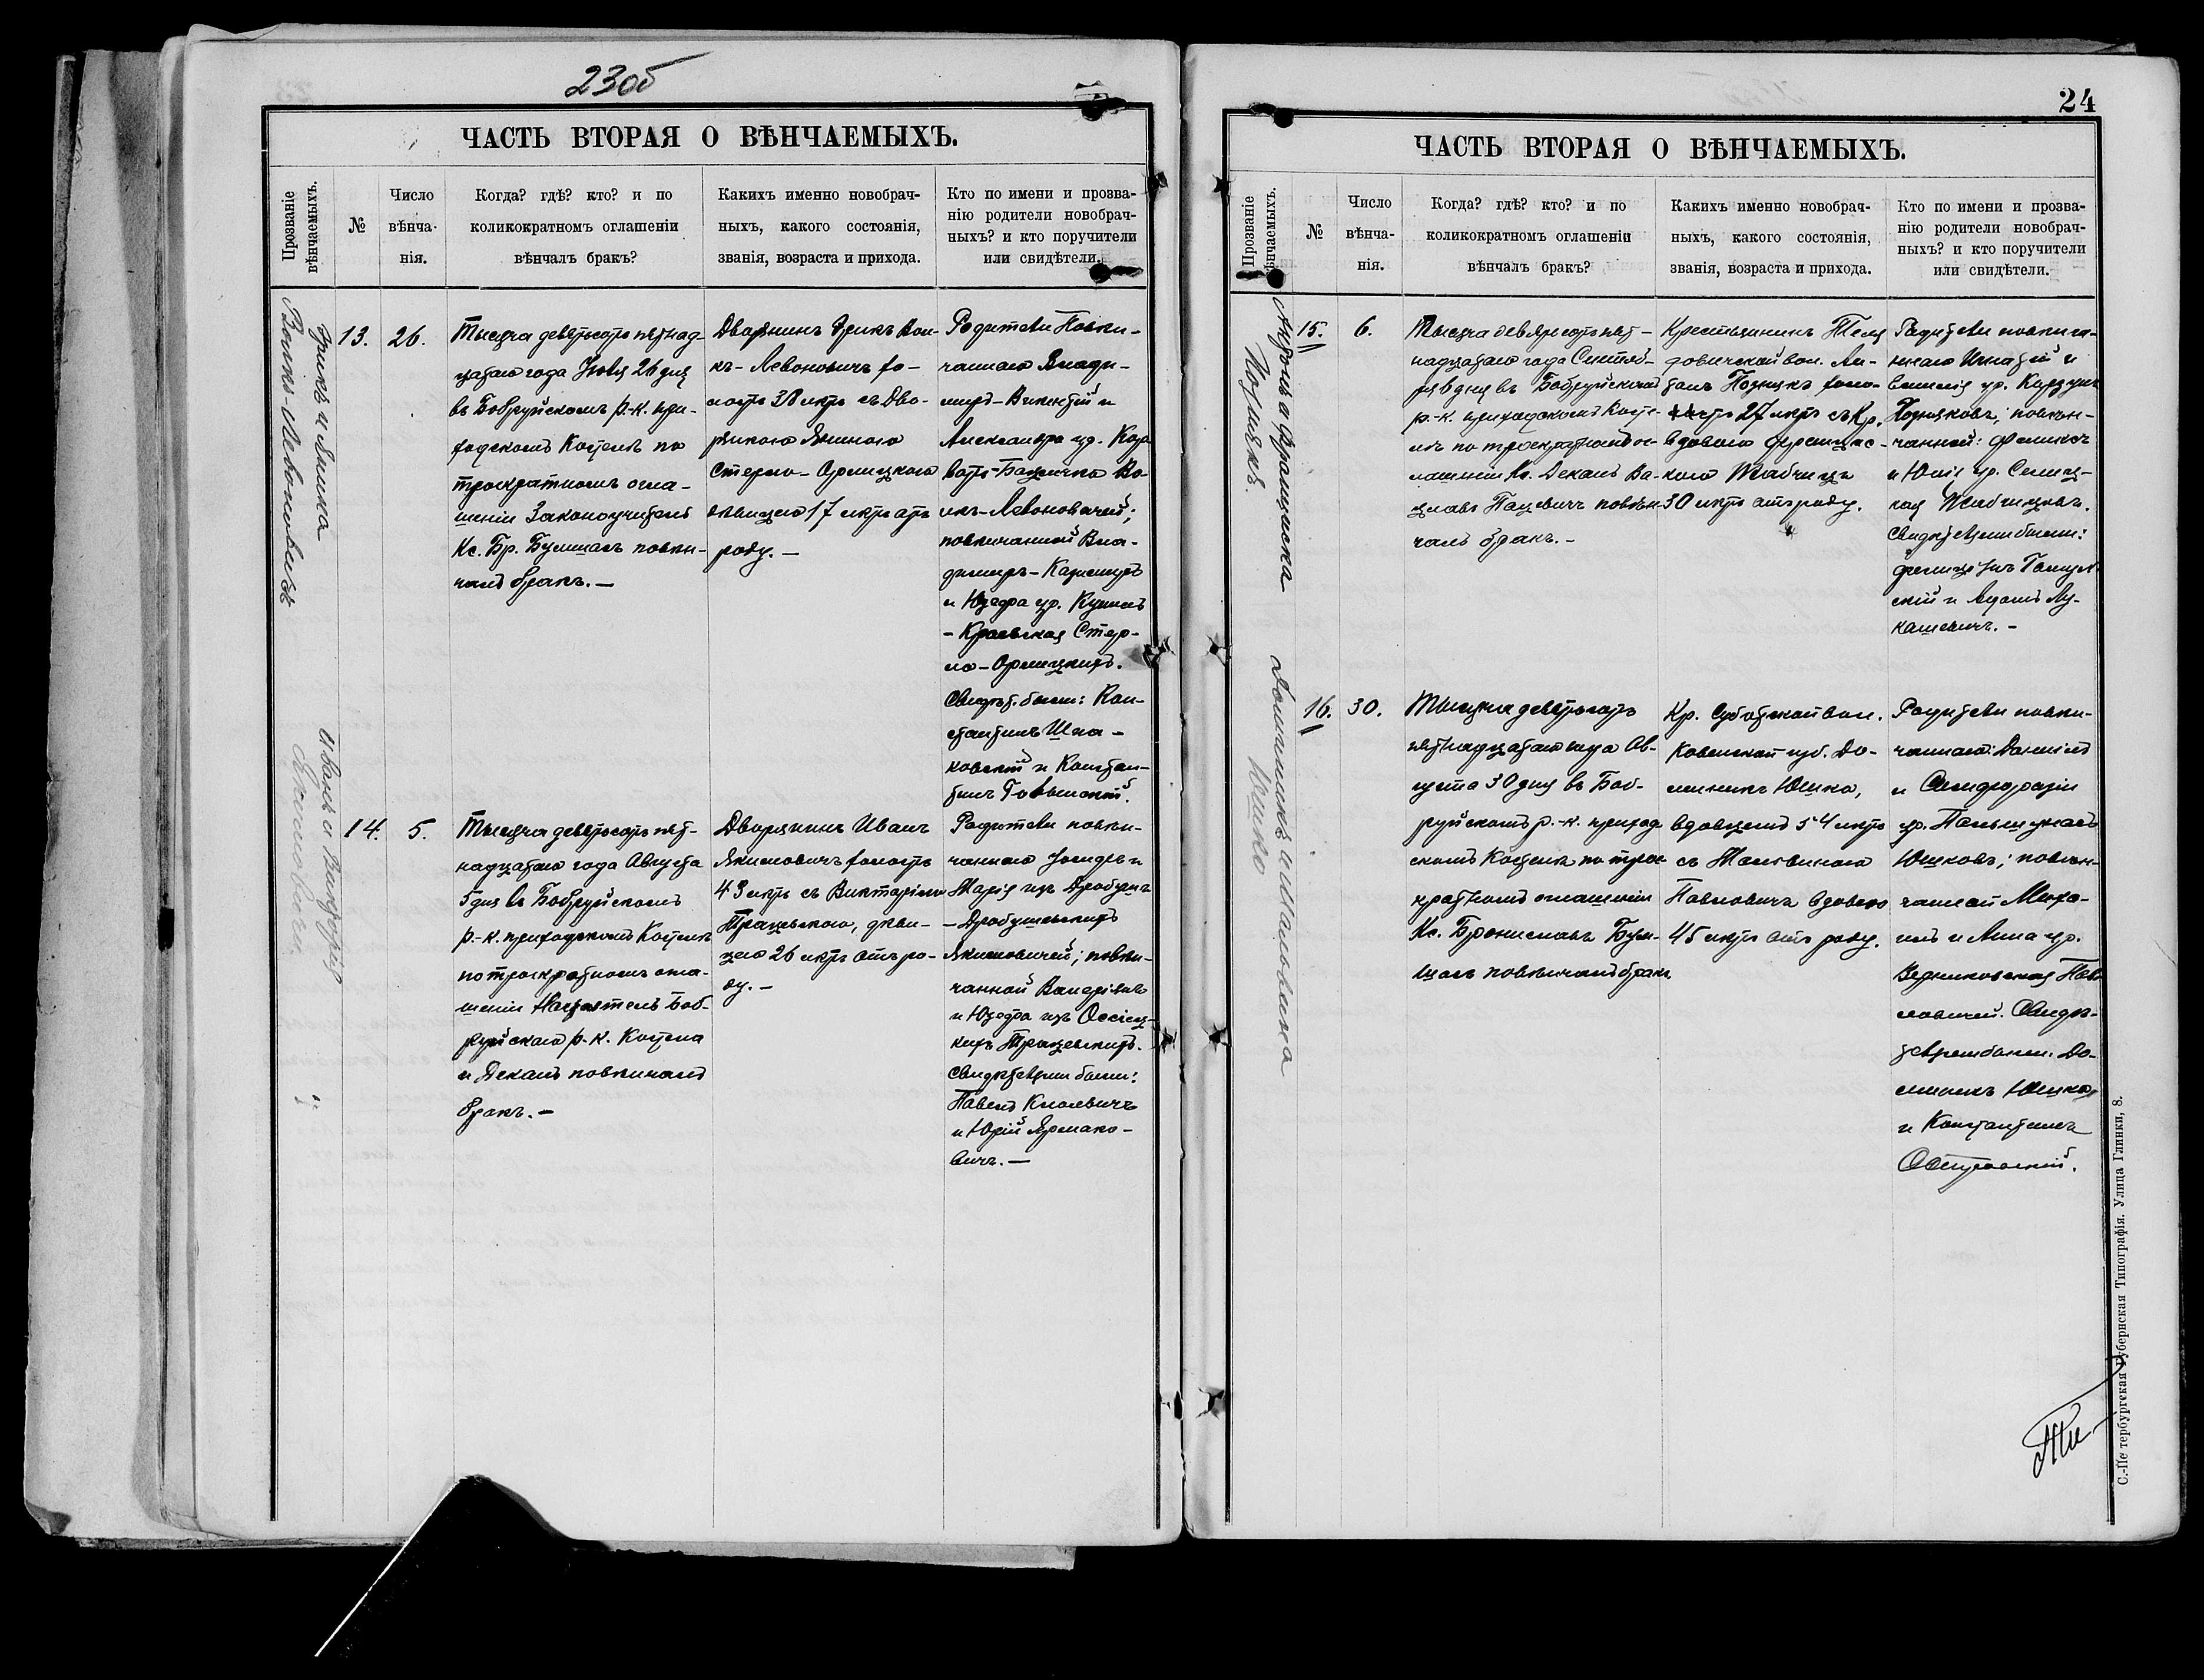 23об
ЧАСТЬ ВТОРАЯ О ВѢНЧАЕМЫХЪ.
Прозваніе
вѣнчаемыхъ.
№
Число
вѣнча-
нія.
Когда? гдѣ? кто? и по
коликократномъ оглашеніи
вѣнчалъ бракъ?
Какихъ именно новобрач-
ныхъ, какого состоянія,
званія, возраста и прихода.
Кто по имени и прозва-
нію родители новобрач-
ныхъ? и кто поручители
или свидѣтели.
Эрикъ и Янина
Волкъ-Левоновичъ
13.
26.
Тысяча девятьсотъ пятнад-
цатаго года Іюля 26 дня
въ Бобруйскомъ р.-к. при-
ходскомъ Костелѣ по
троекратномъ огла-
шеніи Законоучитель
Кс. Бр. повѣн-
чалъ бракъ. —
Дворянинъ Эрикъ Вол-
къ-Левоновичъ хо-
лостъ 38 лѣтъ съ Дво-
рянкою Яниною
Стерло-Орлицкою
дѣвицею 17 лѣтъ отъ
роду. —
Родители Повѣн-
чаннаго Влади-
миръ-Викентій и
Александра ур.
Во-
лкъ-Левоновичей;
повѣнчанной Вла-
димиръ-Казиміръ
и Юзефа ур.
Стер-
ло-Орлицкихъ.
Свидѣт. были: Кон-
стантинъ Шпа-
ковскій и Констан-
тинъ
Иванъ и Викторія
Якимовичи
14.
5.
Тысяча девятьсотъ пят-
надцатаго года Августа
5 дня въ Бобруйскомъ
р.-к. приходскомъ Костелѣ
по троекратномъ огла-
шеніи Настоятель Боб-
руйскаго р.-к. Костела
и Деканъ повѣнчалъ
бракъ. —
Дворянинъ Иванъ
Якимовичъ холостъ
43 лѣтъ съ Викторіею
Трацевскою, дѣви-
цею 26 лѣтъ отъ ро-
ду. —
Родители повѣн-
чаннаго и
Марія изъ
Якимовичей; повѣн-
чанной Валеріанъ
и Юзефа изъ Оссіец-
кихъ Трацевскихъ.
Свидѣтелями были:
Павелъ
и Юрій Ярмако-
вичъ. —
24
ЧАСТЬ ВТОРАЯ О ВѢНЧАЕМЫХЪ.
Прозваніе
вѣнчаемыхъ.
№
Число
вѣнча-
нія.
Когда? гдѣ? кто? и по
коликократномъ оглашеніи
вѣнчалъ бракъ?
Какихъ именно новобрач-
ныхъ, какого состоянія,
званія, возраста и прихода.
Кто по имени и прозва-
нію родители новобрач-
ныхъ? и кто поручители
или свидѣтели.
и Франциска
15.
6.
Тысяча девятьсотъ пят-
надцатаго года Сентяб-
ря 6 дня въ Бобруйскомъ
р.-к. приходскомъ Косте-
лѣ по троекратномъ ог-
лашеніи Кс. Деканъ Ва-
цлавъ Пацевичъ повѣн-
чалъ бракъ. —
Крестьянинъ
вол. Ан-
тонъ Познякъ холо-
27 лѣтъ съ Кр.
вдовою Францис-
кою
30 лѣтъ отъ роду.
Родители повѣнча-
ннаго Игнатій и
ур.
Позняковъ; повѣн-
чанной: Феликсъ
и Юлія ур.
Свидѣтелями были:
и Адамъ Лу-
кашевичъ. —
Доминикъ и Мальвина
Юшко
16.
30.
Тысяча девятьсотъ
пятнадцатаго года Ав-
густа 30 дня въ Боб-
руйскомъ р.-к. приход-
скомъ Костелѣ по трое-
кратномъ оглашеніи
Кс. Брониславъ
повѣнчалъ бракъ.
Кр. вол.
Ковенской губ. До-
миникъ Юшко,
вдовецъ 54 лѣтъ
съ Мальвиною
Павловичъ вдовою
45 лѣтъ отъ роду.
Родители повѣн-
чаннаго: Даніилъ
и
ур.
Юшковъ; повѣн-
чанной Миха-
илъ и Анна ур.
Пав-
ловичей. Свидѣ-
телями были: До-
миникъ Юшко
и Константинъ
Островскій.
С.-Петербургская Губернская Типографія. Улица Глинки, 8.